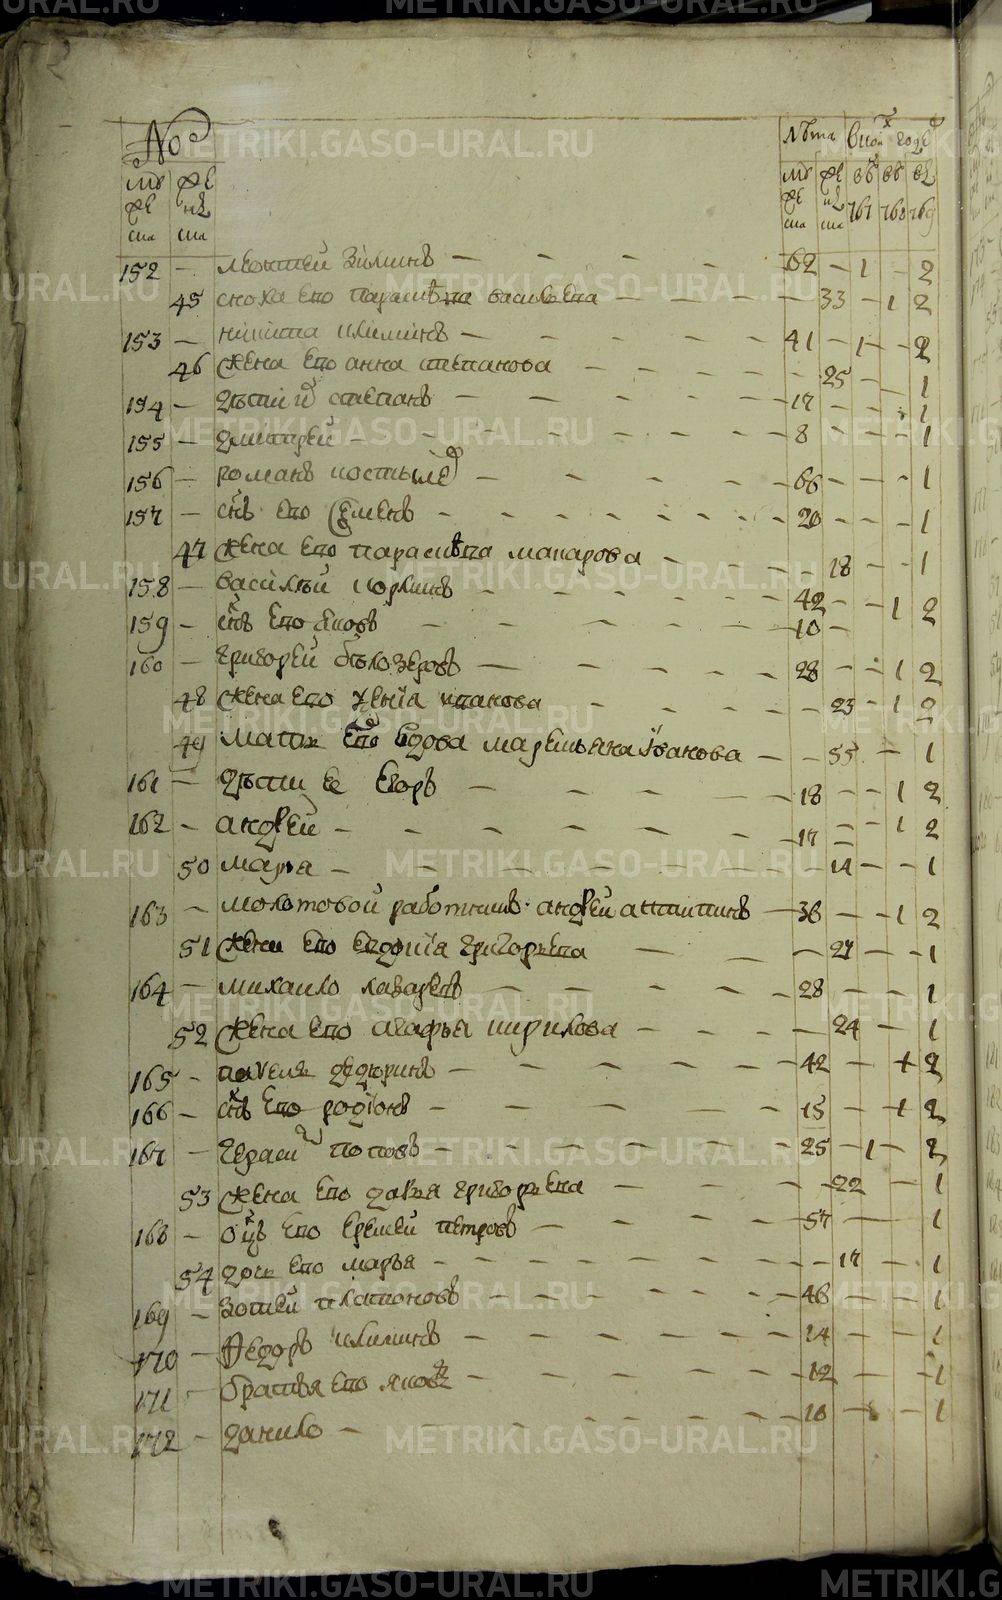 №
лѣта в кои годѣ
му же ска
же нс ка
му же ска
же нс ка
въ 767
въ 768
въ 769
152 — Зиминъ — 62 — 1 — 2
45 сноха ево параскѣва василева — 33 — 1 2
153 — никита климинъ — 41 — 1 — 2
46 жена ево анна степанова — 25 — 1
154 — дѣти и степанъ — 17 — 1
155 — дмитрей — 8 — 1
156 — романъ костылев — 66 — 1
157 — снъ ево Семенъ — 20 — 1
47 жена ево параскѣва макарова — 18 — 1
158 — василеи — 42 — 1 2
159 — снъ ево яковъ — 10 —
160 — григорей бѣлозеровъ — 28 — 1 2
48 жена ево ксенїа иванова — 23 — 1 2
49 мать ево вдова маремьяна іванова — 55 — 1
161 — дѣти ее Егоръ — 18 — 1 2
162 — андрей — 17 — 1 2
50 марья — 14 — 1
163 — молотовой работникъ андрей антипинъ — 36 — 1 2
51 жена ево евдокїа григорьева — 27 — 1
164 — михаило лазаревъ — 28 — 1
52 жена ево агафья кирилова — 24 — 1
165 — павелъ дедюринъ — 42 — 1 2
166 — снъ ево родїонъ — 15 — 1 2
167 — герасим поповъ — 25 — 1 — 2
53 жена ево дарья григорьева — 22 — 1
168 — оцъ ево еремей петровъ — 57 — 1
54 дочь ево марья — 17 — 1
169 — зотей платоновъ — 46 — 1
170 — Федоръ климинъ — 14 — 1
171 — братья ево яковъ — 12 — 1
172 — данило — 10 — 1